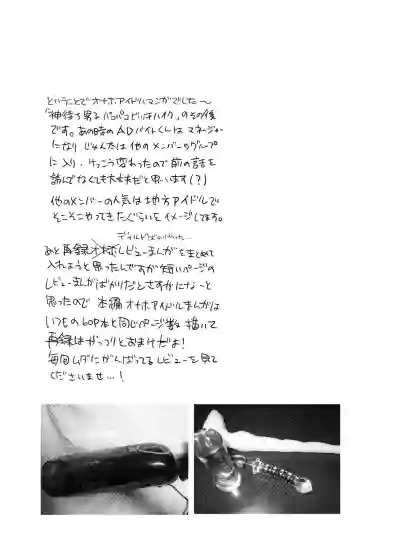 ということでオナホアイドルマンガでした〜
「神待ち男子ハラハラヒッチハイク」のその後
です。あの時のADバイトくんはマネージャー
になり、じゅんたは他のメンバーのグループ
に入り、けっこう変わったので前の話を
読んでなくても大丈夫だと思います(?)
他のメンバーの人気は地方アイドルで
そこそこやってきたぐらいをイメージしてます。
あと再録 レビューまんがをまとめて
入れようと思ったんですが短いページの
レビューまんがばかりだとさすがになーっと
思ったので 本編オナホアイドルまんがは
いつもの60P本と同じページ数描いて
再録はがっつりとおまけだよ!
毎回ムダにがんばってるレビューを見て
くださいませ…!